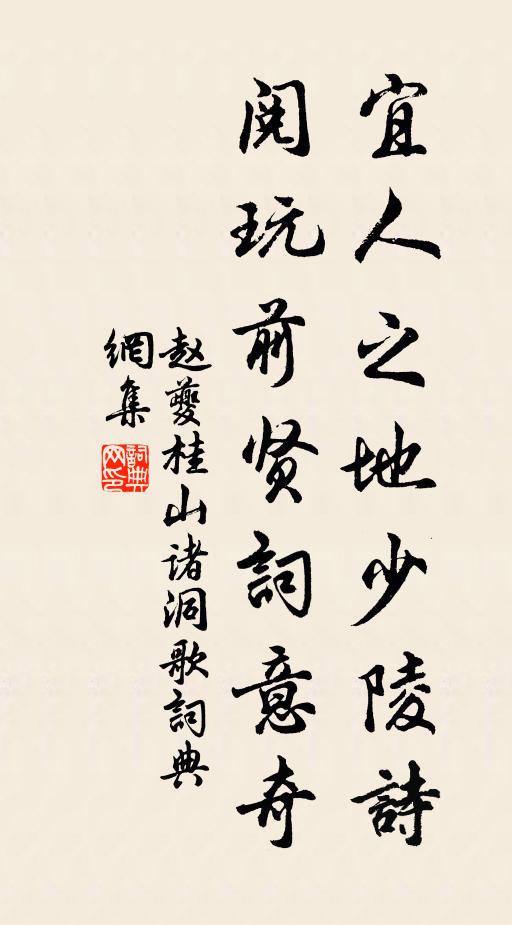 宜人之地少陵詩
閱玩前贤詞意奇
赵夔桂山诸洞歌詞典
網集
詞典
网印